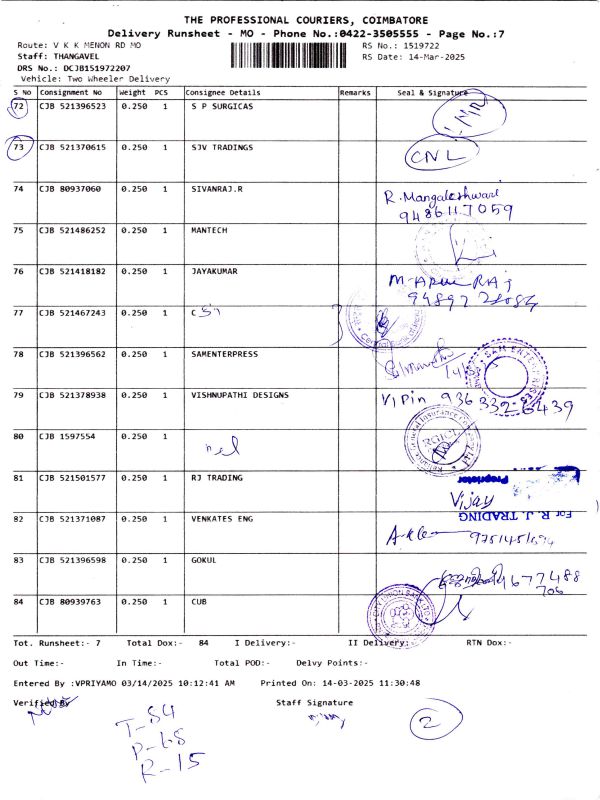 THE PROFESSIONAL COURIERS, COIMBATORE
Delivery Runsheet - MO - Phone No.:0422-3505555 - Page No.:7
Route: V K K MENON RD MO RS No.: 1519722
Staff: THANGAVEL RS Date: 14-Mar-2025
DRS No.: DCJB151972207
Vehicle: Two Wheeler Delivery
S No Consignment No Weight PCS Consignee Details Remarks Seal & Signature
72 CJB 521396523 0.250 1 S P SURGICAS
73 CJB 521370615 0.250 1 SJV TRADINGS CNL
74 CJB 80937060 0.250 1 SIVANRAJ.R R. Mangaleshwari
9486117059
75 CJB 521486252 0.250 1 MANTECH
76 CJB 521418182 0.250 1 JAYAKUMAR
77 CJB 521467243 0.250 1 C
78 CJB 521396562 0.250 1 SAMENTERPRESS SAM ENTERPRISES
79 CJB 521378938 0.250 1 VISHNUPATHI DESIGNS Vipin 936 332 6439
80 CJB 1597554 0.250 1 RGICL
81 CJB 521501577 0.250 1 RJ TRADING Proprietor
Vijay
For R. J. TRADING
82 CJB 521371087 0.250 1 VENKATES ENG
83 CJB 521396598 0.250 1 GOKUL
84 CJB 80939763 0.250 1 CUB
Tot. Runsheet:- 7 Total Dox:- 84 I Delivery:- II Delivery:- RTN Dox:-
Out Time:- In Time:- Total POD:- Delvy Points:-
Entered By :VPRIYAMO 03/14/2025 10:12:41 AM Printed On: 14-03-2025 11:30:48
Verified By Staff Signature
T-84
P-68
R-15
2